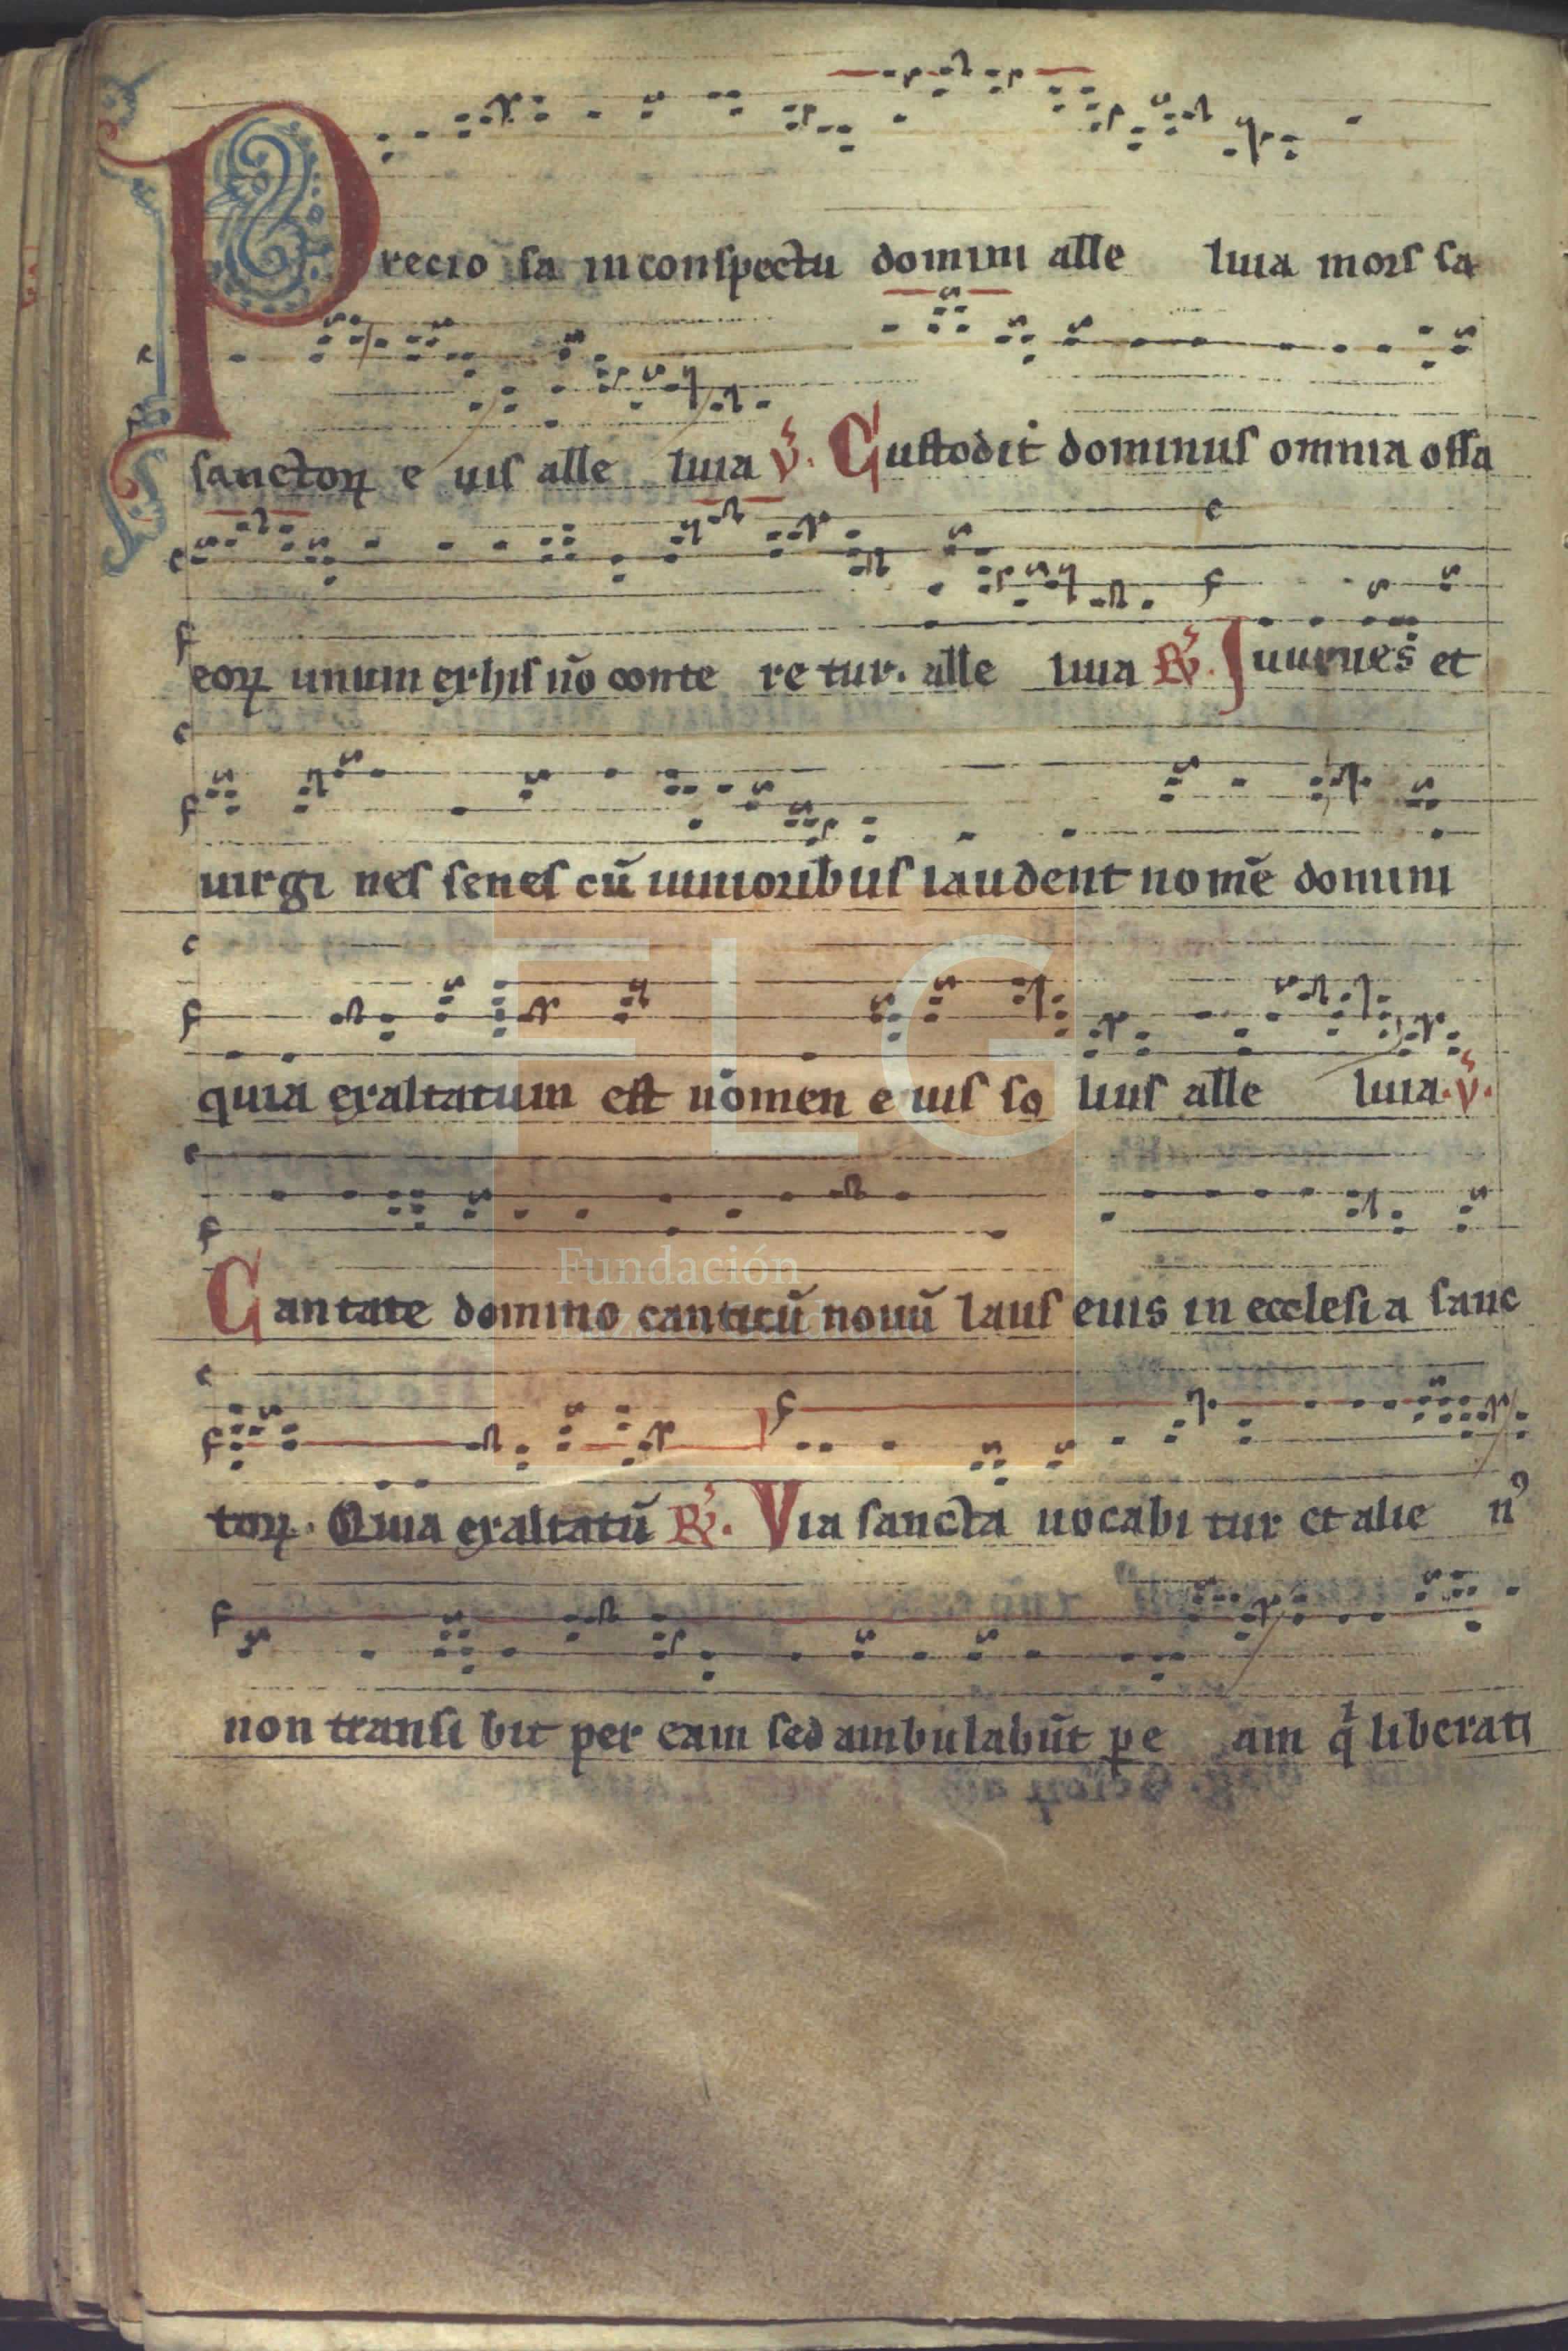 Precio sa in conspectu domini alle luia mors sa
sanctoꝝ e uis alle luia ℣. Custodit dominus omnia ossa
eoꝝ unum ex his nō conte re tur. alle luia ℟. Iuuenes et
uirgi nes senes cū iunioribus laudent nomē domini
quia exaltatum est nomen e uis so lius alle luia. ℣.
Cantate domino canticū nouū laus eius in ecclesia sanc
toꝝ. Quia exaltatū ℟. Via sancta uocabi tur et alie nꝰ
non transi bit per eam sed ambulabūt ꝑ e am q̇ liberati
FLG
Fundación